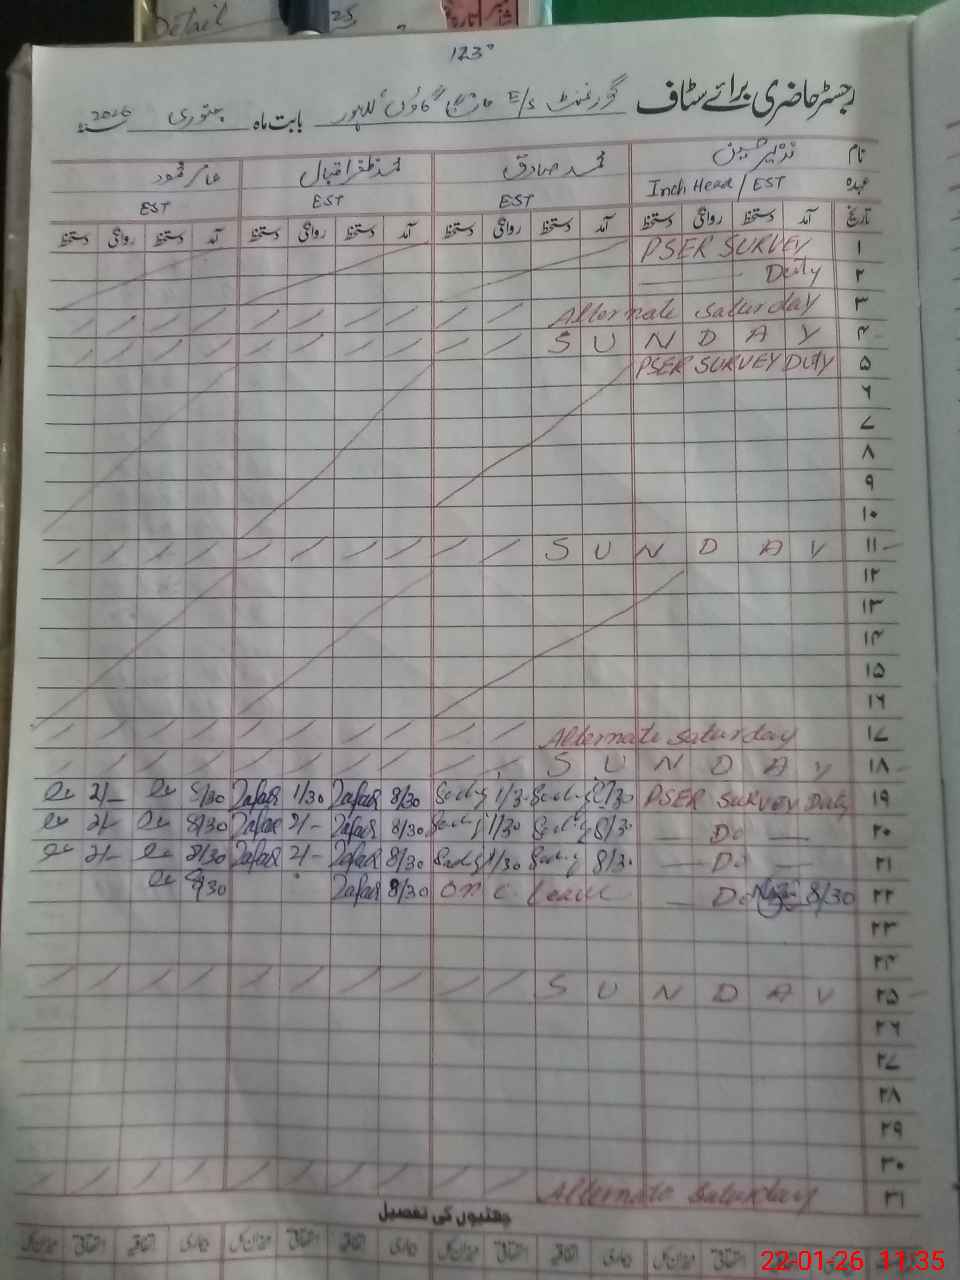 Detail 25
123
رجسٹر حاضری برائے سٹاف گورنمنٹ E/S گاؤں لاہور بابت ماہ جنوری 2026
نام نذیر حسین محمد صادق محمد ظفر اقبال عامر محمود
عہدہ Inch Head / EST EST EST EST
تاریخ آمد دستخط روانگی دستخط آمد دستخط روانگی دستخط آمد دستخط روانگی دستخط آمد دستخط روانگی دستخط
۱ PSER SURVEY
۲ Duty
۳ Alternate Saturday
۴ S U N D A Y
۵ PSER SURVEY DUTY
۶
۷
۸
۹
۱۰
۱۱ S U N D A Y
۱۲
۱۳
۱۴
۱۵
۱۶
۱۷ Alternate Saturday
۱۸ S U N D A Y
۱۹ PSER Survey Duty 8/30 Sadiq 1/30 Sadiq 8/30 Zafar 1/30 Zafar 8/30 2/-
۲۰ Do 8/30 Sadiq 1/30 Sadiq 8/30 Zafar 2/- Zafar 8/30 2/-
۲۱ Do 8/30 Sadiq 1/30 Sadiq 8/30 Zafar 2/- Zafar 8/30 2/-
۲۲ 8/30 Do On C. Leave 8/30 Zafar 8/30
۲۳
۲۴
۲۵ S U N D A Y
۲۶
۲۷
۲۸
۲۹
۳۰
۳۱ Alternate Saturday
چھٹیوں کی تفصیل
22-01-26 11:35